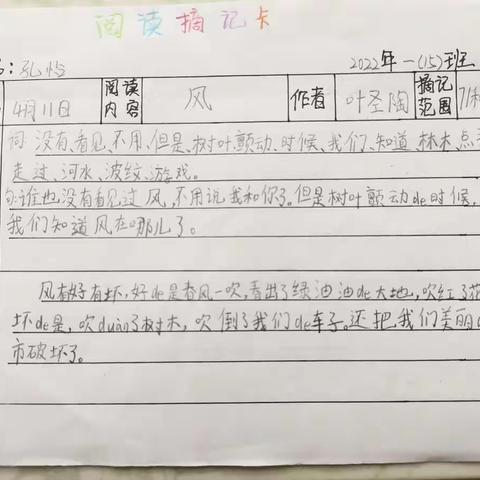 阅读摘记卡
2022年一(15)班
4月11日 阅读内容 风 作者 叶圣陶 摘记范围
词:没有、看见、不用、但是、树叶、颤动、时候、我们、知道、林木、点
走过、河水、波纹、游戏。
句:谁也没有看见过风,不用说我和你了。但是树叶颤动de时候,
我们知道风在哪儿了。
风有好有坏,好de是春风一吹,看出了绿油油de大地,吹红了花
坏de是,吹duàn了树木,吹倒了我们de车子。还把我们美丽
市破坏了。